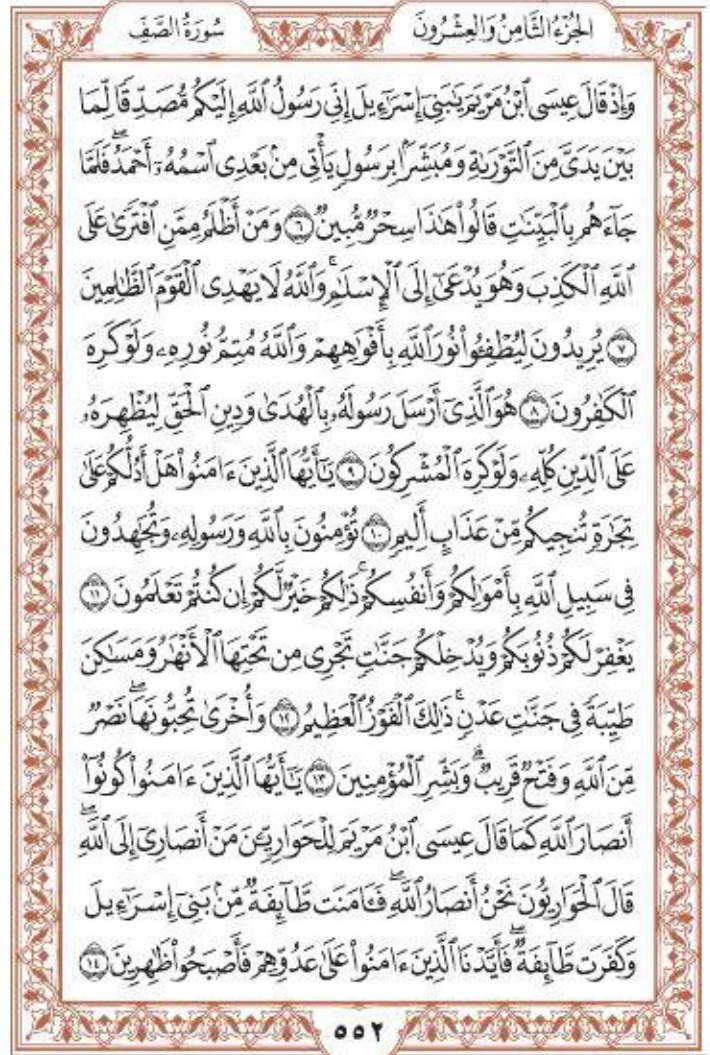 الجُزْءُ الثَّامِنُ وَالعِشْرُونَ سُورَةُ الصَّفِّ
وَإِذْ قَالَ عِيسَى ٱبْنُ مَرْيَمَ يَٰبَنِىٓ إِسْرَٰٓءِيلَ إِنِّى رَسُولُ ٱللَّهِ إِلَيْكُم مُّصَدِّقًا لِّمَا
بَيْنَ يَدَىَّ مِنَ ٱلتَّوْرَىٰةِ وَمُبَشِّرًۢا بِرَسُولٍ يَأْتِى مِنۢ بَعْدِى ٱسْمُهُۥٓ أَحْمَدُۖ فَلَمَّا
جَآءَهُم بِٱلْبَيِّنَٰتِ قَالُوا۟ هَٰذَا سِحْرٌ مُّبِينٌ ٦ وَمَنْ أَظْلَمُ مِمَّنِ ٱفْتَرَىٰ عَلَى
ٱللَّهِ ٱلْكَذِبَ وَهُوَ يُدْعَىٰٓ إِلَى ٱلْإِسْلَٰمِۚ وَٱللَّهُ لَا يَهْدِى ٱلْقَوْمَ ٱلظَّٰلِمِينَ
٧ يُرِيدُونَ لِيُطْفِـُٔوا۟ نُورَ ٱللَّهِ بِأَفْوَٰهِهِمْ وَٱللَّهُ مُتِمُّ نُورِهِۦ وَلَوْ كَرِهَ
ٱلْكَٰفِرُونَ ٨ هُوَ ٱلَّذِىٓ أَرْسَلَ رَسُولَهُۥ بِٱلْهُدَىٰ وَدِينِ ٱلْحَقِّ لِيُظْهِرَهُۥ
عَلَى ٱلدِّينِ كُلِّهِۦ وَلَوْ كَرِهَ ٱلْمُشْرِكُونَ ٩ يَٰٓأَيُّهَا ٱلَّذِينَ ءَامَنُوا۟ هَلْ أَدُلُّكُمْ عَلَىٰ
تِجَٰرَةٍ تُنجِيكُم مِّنْ عَذَابٍ أَلِيمٍ ١٠ تُؤْمِنُونَ بِٱللَّهِ وَرَسُولِهِۦ وَتُجَٰهِدُونَ
فِى سَبِيلِ ٱللَّهِ بِأَمْوَٰلِكُمْ وَأَنفُسِكُمْۚ ذَٰلِكُمْ خَيْرٌ لَّكُمْ إِن كُنتُمْ تَعْلَمُونَ ١١
يَغْفِرْ لَكُمْ ذُنُوبَكُمْ وَيُدْخِلْكُمْ جَنَّٰتٍ تَجْرِى مِن تَحْتِهَا ٱلْأَنْهَٰرُ وَمَسَٰكِنَ
طَيِّبَةً فِى جَنَّٰتِ عَدْنٍۚ ذَٰلِكَ ٱلْفَوْزُ ٱلْعَظِيمُ ١٢ وَأُخْرَىٰ تُحِبُّونَهَاۖ نَصْرٌ
مِّنَ ٱللَّهِ وَفَتْحٌ قَرِيبٌۗ وَبَشِّرِ ٱلْمُؤْمِنِينَ ١٣ يَٰٓأَيُّهَا ٱلَّذِينَ ءَامَنُوا۟ كُونُوٓا۟
أَنصَارَ ٱللَّهِ كَمَا قَالَ عِيسَى ٱبْنُ مَرْيَمَ لِلْحَوَارِيِّۦنَ مَنْ أَنصَارِىٓ إِلَى ٱللَّهِۖ
قَالَ ٱلْحَوَارِيُّونَ نَحْنُ أَنصَارُ ٱللَّهِۖ فَـَٔامَنَت طَّآئِفَةٌ مِّنۢ بَنِىٓ إِسْرَٰٓءِيلَ
وَكَفَرَت طَّآئِفَةٌۖ فَأَيَّدْنَا ٱلَّذِينَ ءَامَنُوا۟ عَلَىٰ عَدُوِّهِمْ فَأَصْبَحُوا۟ ظَٰهِرِينَ ١٤
٥٥٢